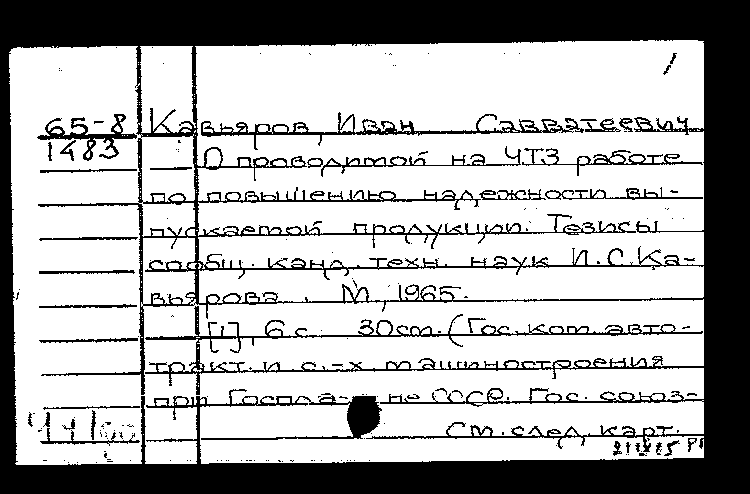 1
65-8 Кавьяров, Иван Савватеевич
1483 О проводимой на ЧТЗ работе
по повышению надежности вы-
пускаемой продукции. Тезисы
сообщ. канд. техн. наук И.С.Ка-
вьярова. М., 1965.
[1], 6 с. 30см. (Гос. ком. авто-
тракт. и с.-х. машиностроения
при Госпла- не СССР. Гос. союз-
См. след. карт.